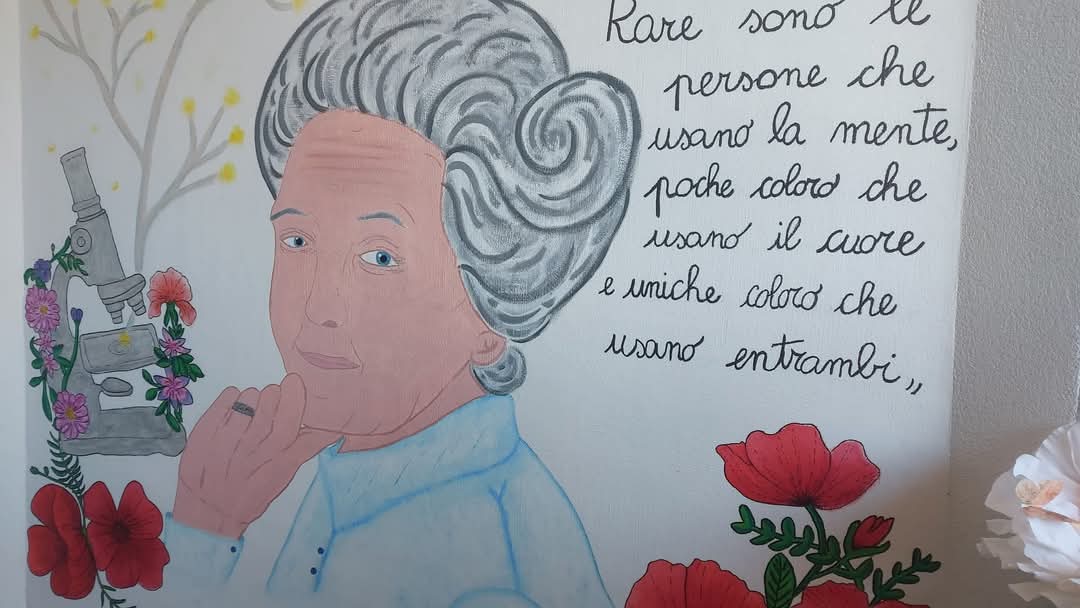 Rare sono le
persone che
usano la mente,
poche coloro che
usano il cuore
e uniche coloro che
usano entrambi„